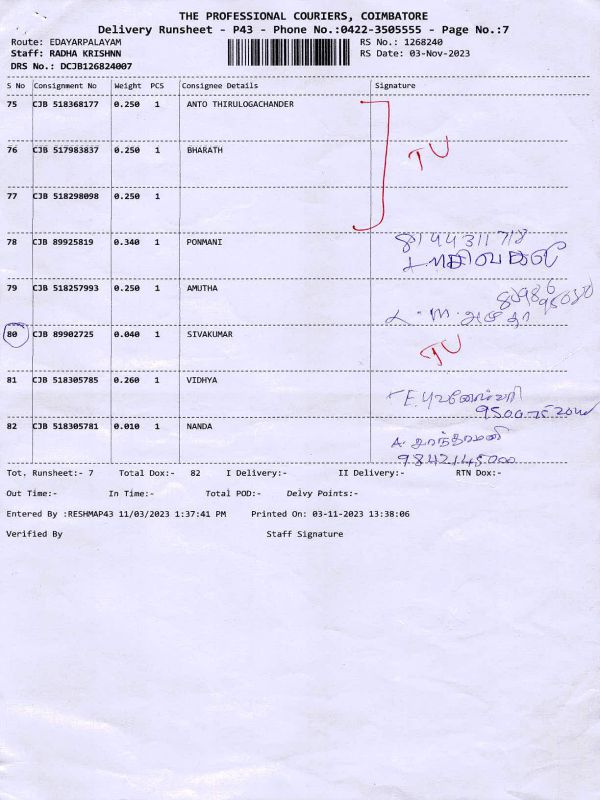 THE PROFESSIONAL COURIERS, COIMBATORE
Delivery Runsheet - P43 - Phone No.:0422-3505555 - Page No.:7
Route: EDAYARPALAYAM RS No.: 1268240
Staff: RADHA KRISHNN RS Date: 03-Nov-2023
DRS No.: DCJB126824007
S No Consignment No Weight PCS Consignee Details Signature
75 CJB 518368177 0.250 1 ANTO THIRULOGACHANDER
TU
76 CJB 517983837 0.250 1 BHARATH
77 CJB 518298098 0.250 1
78 CJB 89925819 0.340 1 PONMANI 8144311718
79 CJB 518257993 0.250 1 AMUTHA 80986
80 CJB 89902725 0.040 1 SIVAKUMAR TU
81 CJB 518305785 0.260 1 VIDHYA
82 CJB 518305781 0.010 1 NANDA
9842145000
Tot. Runsheet:- 7 Total Dox:- 82 I Delivery:- II Delivery:- RTN Dox:-
Out Time:- In Time:- Total POD:- Delvy Points:-
Entered By :RESHMAP43 11/03/2023 1:37:41 PM Printed On: 03-11-2023 13:38:06
Verified By Staff Signature